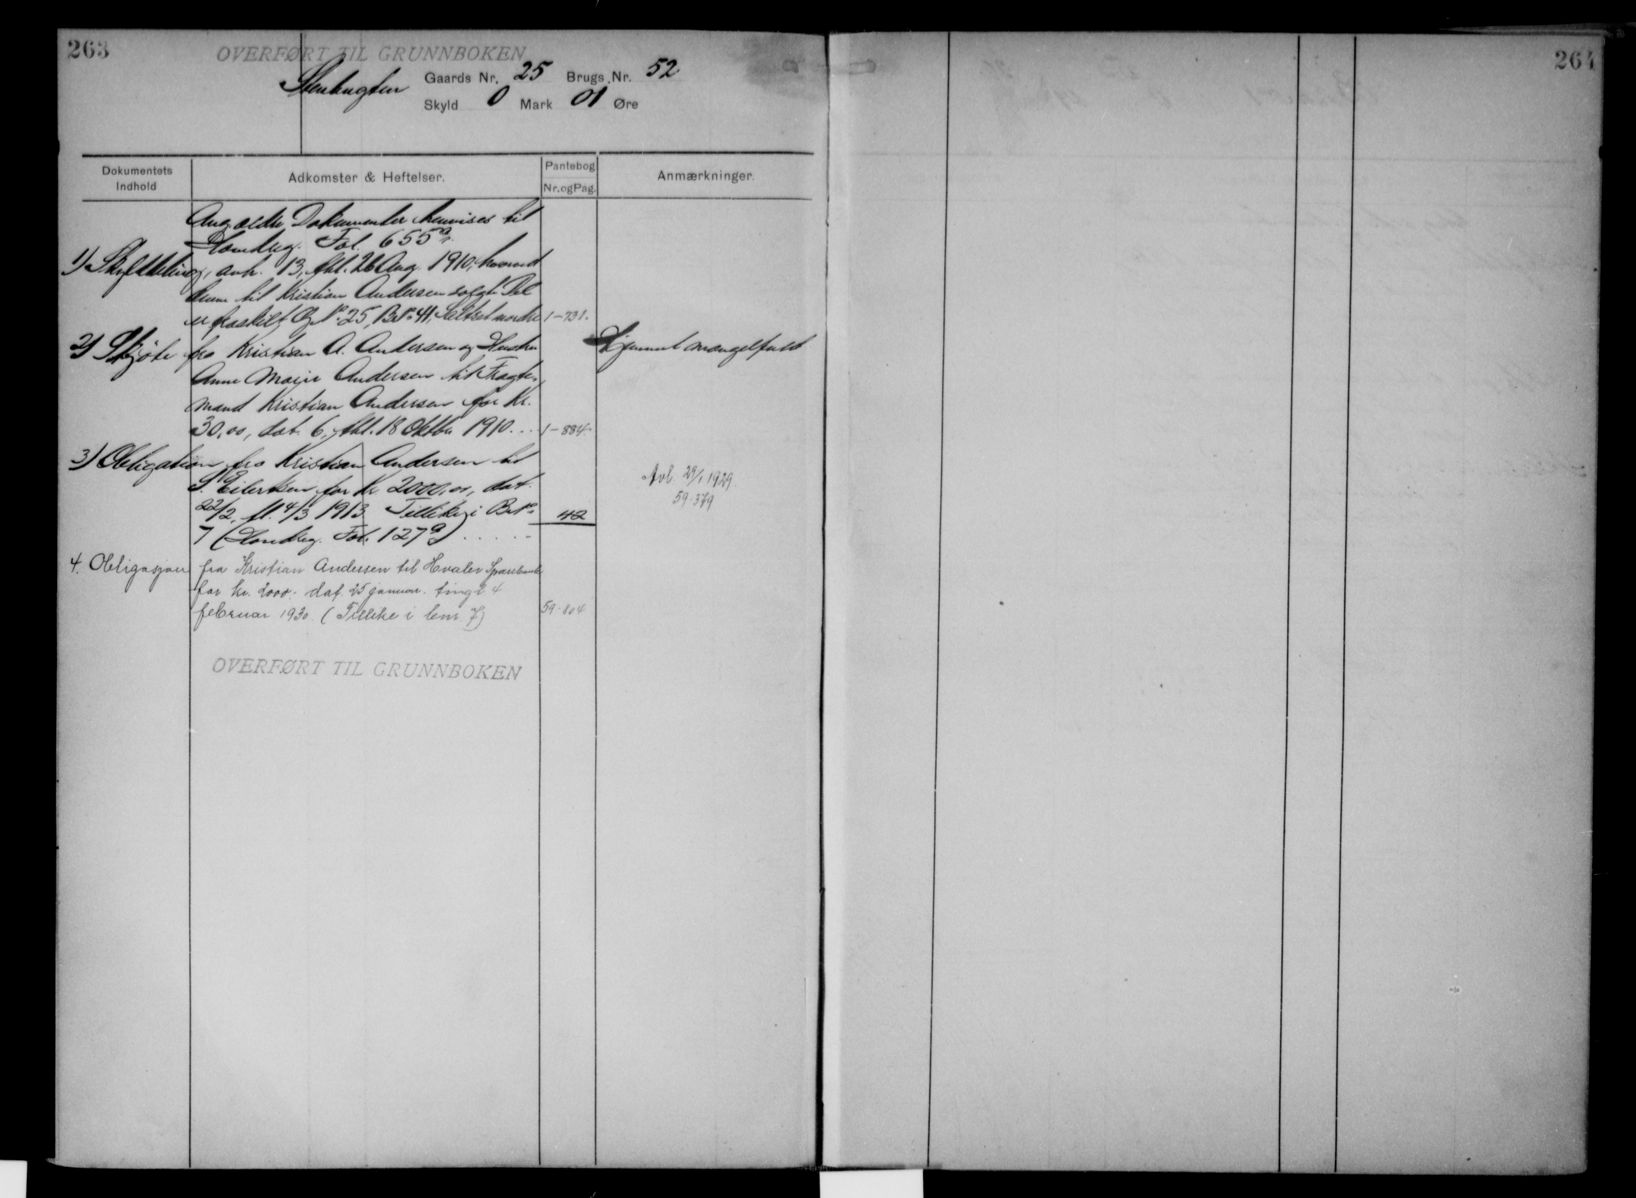 263
OVERFØRT TIL GRUNNBOKEN
Gaards Nr. 25 Brugs Nr. 52
Skyld 0 Mark 01 Øre
Dokumentets Indhold
Adkomster & Heftelser.
Pantebog
Nr. og Pag.
Anmærkninger.
Ang. ældre Dokumenter henvises til
Landreg. Fol. 655a.
1) Skylddeling, avh. 13, thl. 26 Aug. 1910, hvorved
denne til Kristian Andersen solgte Del
er fraskilt Gr. No. 25, Br. No. 41, nordre 1-731.
2) Skjøte fra Kristian A. Andersen og Hustru Hjemmel mangelfuld
Anne Marie Andersen til Fragte-
mand Kristian Andersen for Kr.
30,00, dat. 6, thl. 18 Oktbr 1910... 1-884.
3) Obligation fra Kristian Andersen til
S. Eilertsen for Kr 2000,00, dat.
22/2, tl. 4/3 1913. Tillike i Br. No. 42
7 (Landreg. Fol. 127a) .....
Avl. 29/1 1929.
59-379
4. Obligasjon fra Kristian Andersen til Hvaler Sparebank
for kr. 2000.- dat. 25 januar. tingl 4
februar 1930. (Tillike i bnr. 7) 59-804
OVERFØRT TIL GRUNNBOKEN
264